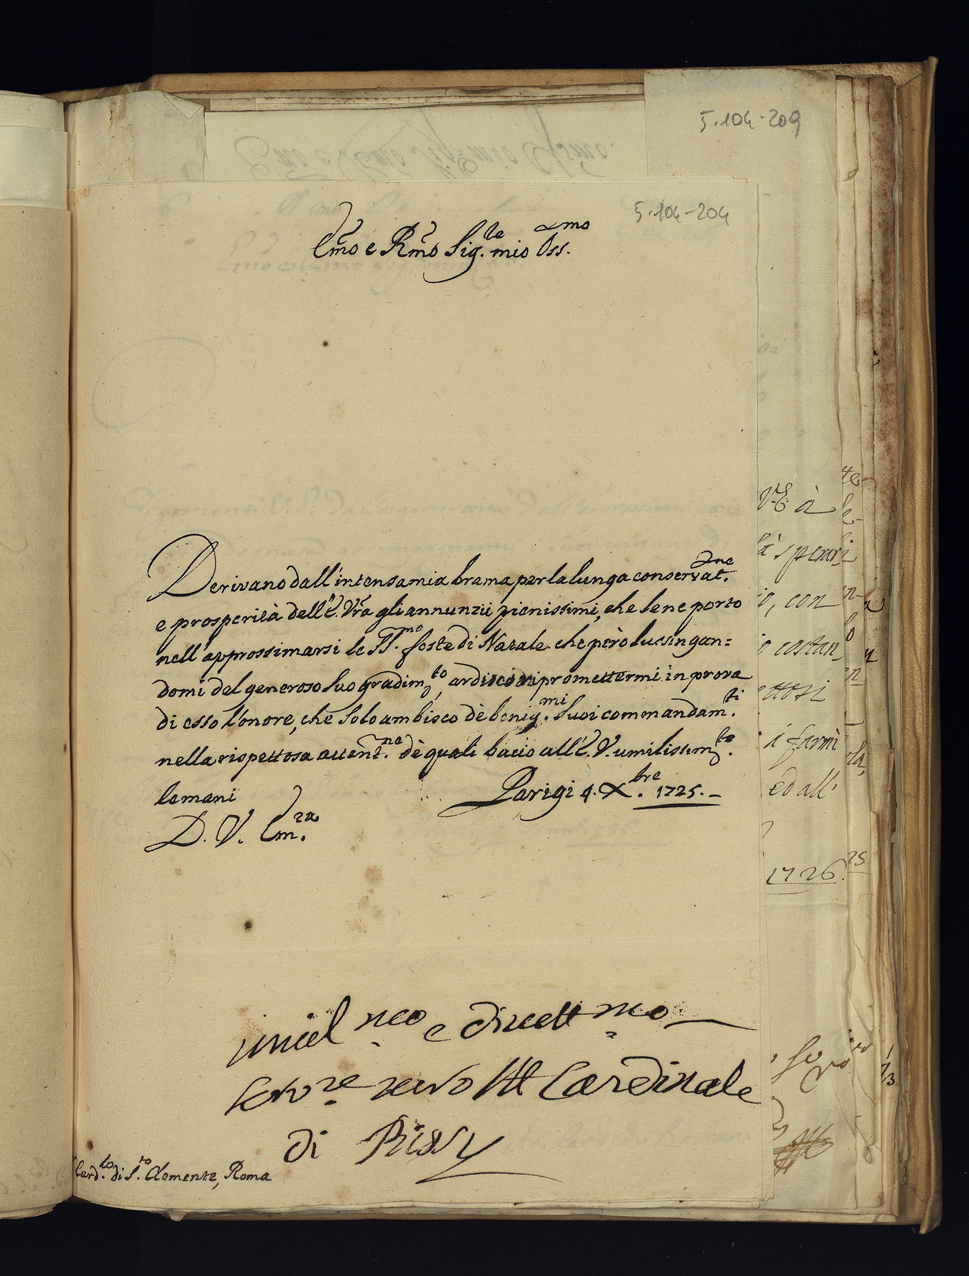 5.104-209
5.104-204
Emo e Rmo Sig.re mio Oss.mo
Derivano dall'intensa mia brama per la lunga conservat.ne
e prosperità dell'E. Vra gli annunzii pienissimi, che le ne porto
nell'approssimarsi le SS.me feste di Natale, che però lusingan=
domi del generoso suo gradim.to, ardisco ripromettermi in prova
di esso l'onore, che solo ambisco dè benig.mi suoi commandam.ti
nella rispettosa attent.ne dè quali bacio all'E. V. umilissim.te
le mani
Parigi 4. Xbre. 1725.
D. V. Em.za
e
Serv.re vero Il Cardinale
di Bissy
Card.le di S.to Clemente, Roma
V.E. à
io, con
costan
ed all'
1726